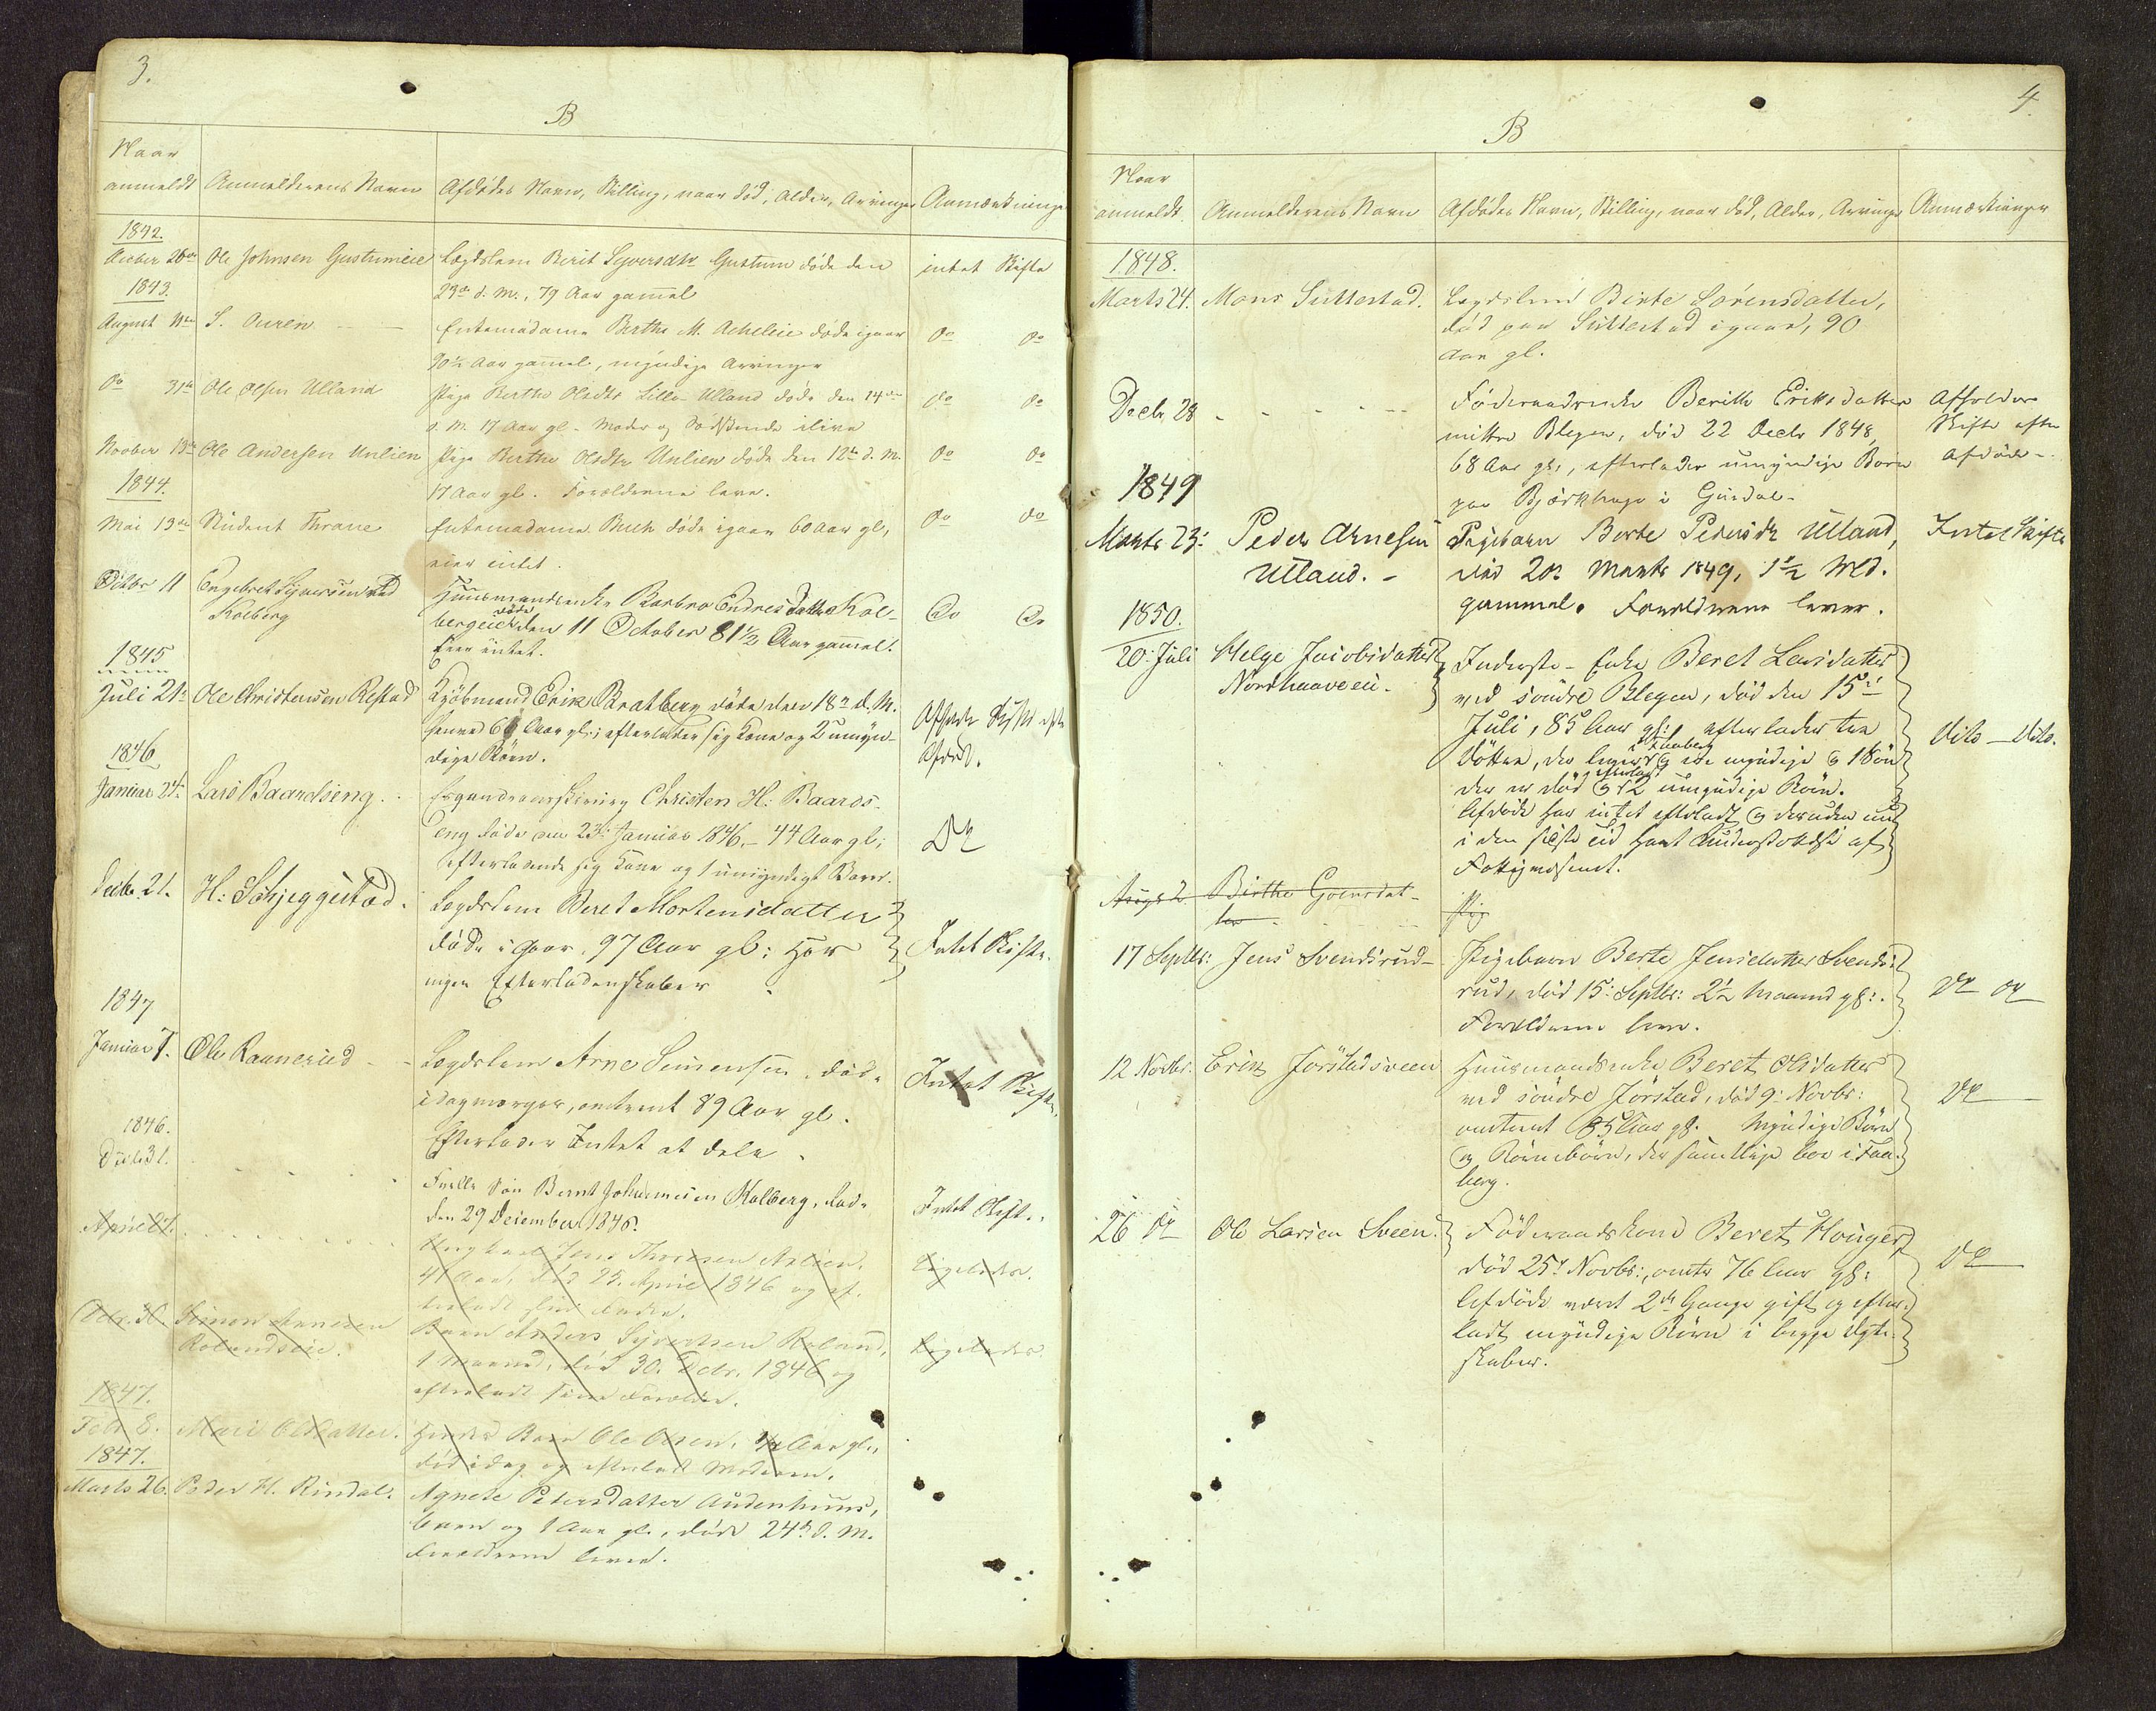 3.
B
Naar
anmeldt
Anmelderens Navn
Afdødes Navn, Stilling, naar død, Alder, Arvinger
Anmærkninger
1842.
Ole Johnsen Gustumeie
Lægdslem Berit Syversdtr Gustum døde den
intet Skifte
23de d. M., 79 Aar gammel
1843.
August
S. Onren
Enkemadame Berthe M. døde igaar
Do Do
90½ Aar gammel, myndige Arvinger
Do 31te
Ole Olsen Ulland
Pige Berthe Olsdtr Lille-Ulland døde den 14de
Do Do
d. M. 17 Aar gl. Moder og Sødskende ilive
Novber 13de
Ole Andersen Unlien
Pige Berthe Olsdtr Unlien døde den 12te d. M.
Do Do
17 Aar gl. Forældrene leve.
1844.
Mai 13de
Student Thrane
Enkemadame Buch døde igaar 60 Aar gl,
Do Do
eier intet.
Octbr 11
Engebret Syversen
Kolberg
Huusmandsenke Barbro Endresdatter Kol-
bergeiet døde den 11 October 81½ Aar gammel.
Do Do
Eier intet.
1845
Juli 21de
Ole Christensen Refstad
Kjøbmand Erik Bratberg døde den 18de d. M.
66 Aar gl; efterlader sig Kone og 2 umyn-
dige Børn.
Afholdt Skifte efter
Afdøde.
1846
Januar 24.
Lars Baardseng.
Christen H. Baards-
eng døde den 23de Januar 1846, 44 Aar gl;
efterladende sig Kone og 1 umyndigt Barn.
Do
Decbr. 21.
H. Schjeggestad.
Lægdslem Beret Mortensdatter
døde i Gaar, 97 Aar gl; har
ingen Efterladenskaber
Intet Skifte.
1847
Januar 7.
Ole Raanerud
Lægdslem Arne Simensen, død
idagmorges, omtrent 89 Aar gl.
Efterlader Intet at dele.
Intet Skifte.
1846.
Decbr 31.
Søn Bernt Johannesen Kalberg, død
den 29 December 1846.
Intet Skift.
April 27.
Ungkarl Jens Thoresen
41 Aar, død 25. April 1846 og ef-
terladt sin Fader.
Ligeledes.
Dcbr. 30.
Simon Arnesen
Rolandseie.
Barn Anders Syvertsen Roland,
1 Maaned, død 30. Dcbr. 1846 og
efterladt sine Forældre.
Ligeledes.
1847.
Febr. 8.
Mari Olsdatter.
Hendes Barn Ole Olsen, ¾ Aar gl.,
død idag og efterladt Moderen.
1847.
Marts 26.
Peder H. Rindal.
Agnete Petersdatter Audenhuus,
Barn og 1 Aar gl., døde 24de d. M.
Forældrene lever.
4.
B
Naar
anmeldt.
Anmelderens Navn
Afdødes Navn, Stilling, naar død, Alder, Arvinger
Anmærkninger
1848.
Marts 24.
Mons Suttestad.
Lægdslem Birte Sørensdatter,
død paa Suttestad igaar, 90
Aar gl.
Decbr 28
Føderaadsenke Berithe Eriksdatter
mittre Blegen, død 22 Decbr 1848,
68 Aar gl., efterlader umyndige Børn
paa Bjørkhage i Gausdal.
Afholder
Skifte efter
Afdøde.
1849
Marts 23:
Peder Arnesen
Ulland.
Pigebarn Berte Pedersdtr Ulland,
død 20de Marts 1849, 1½ Md.
gammel. Forældrene lever.
Intet Skifte
1850.
20: Juli
Helge Jacobsdatter
Nordhaaveeie.
Inderste-Enke Beret Larsdatter
ved søndre Blegen, død den 15de
Juli, 85 Aar gl: efterlader tre
Døttre, der lever i Faaberg og ere myndige og 1 Søn
der er død og efterladt 2 umyndige Børn.
Afdøde har intet efterladt og desuden nu
i den sidste Tid havt Understøttelse af
Fattigvæsenet.
Dito - Dito.
August 2
Birthe Goensdat-
ter
Pig
17 Septbr:
Jens Svendsrud
Pigebarn Berte Jensdatter Svends-
rud, død 15: Septbr: 2½ Maaned gl:
Forældrene leve.
Do Do
12 Novbr:
Erik Jørstadsveen
Huusmandsenke Beret Olsdatter
ved søndre Jørstad, død 9: Novbr:
omtrent 85 Aar gl. Myndige Børn
og Børnebørn, der samtlige boe i Faa-
berg.
Do
26 Do
Ole Larsen Sveen.
Føderaadskone Beret Houger,
død 25de Novbr:, omtr 76 Aar gl:
Afdøde været 2de Gange gift og efter-
ladt myndige Børn i begge Ægte-
skaber.
Do